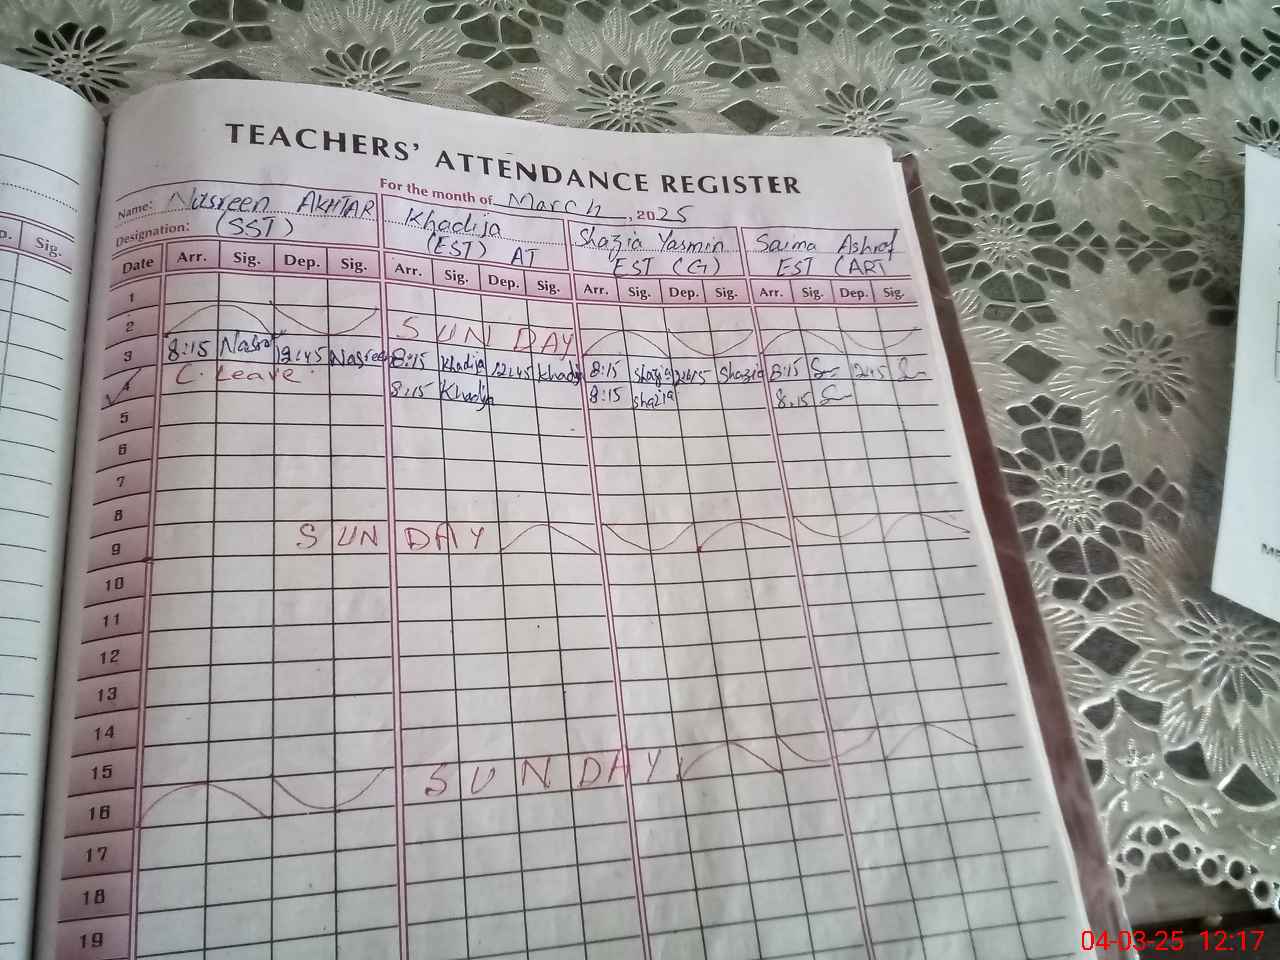 TEACHERS' ATTENDANCE REGISTER
For the month of March, 2025
Name: Nasreen AKHTAR Khadija Shazia Yasmin Saima Ashraf
Designation: (SST) (EST) AT EST (G) EST (ART
D. Sig.
Date Arr. Sig. Dep. Sig. Arr. Sig. Dep. Sig. Arr. Sig. Dep. Sig. Arr. Sig. Dep. Sig.
1
2 SUNDAY
3 8:15 12:45 Nasreen 8:15 Khadija 12:45 Khadij 8:15 Shazia 12:45 Shazia 8:15 12:45
4 C. Leave. 8:15 Khadija 8:15 Shazia 8:15
5
6
7
8
9 SUNDAY
10
11
12
13
14
15
16 SUNDAY
17
18
19
04-03-25 12:17